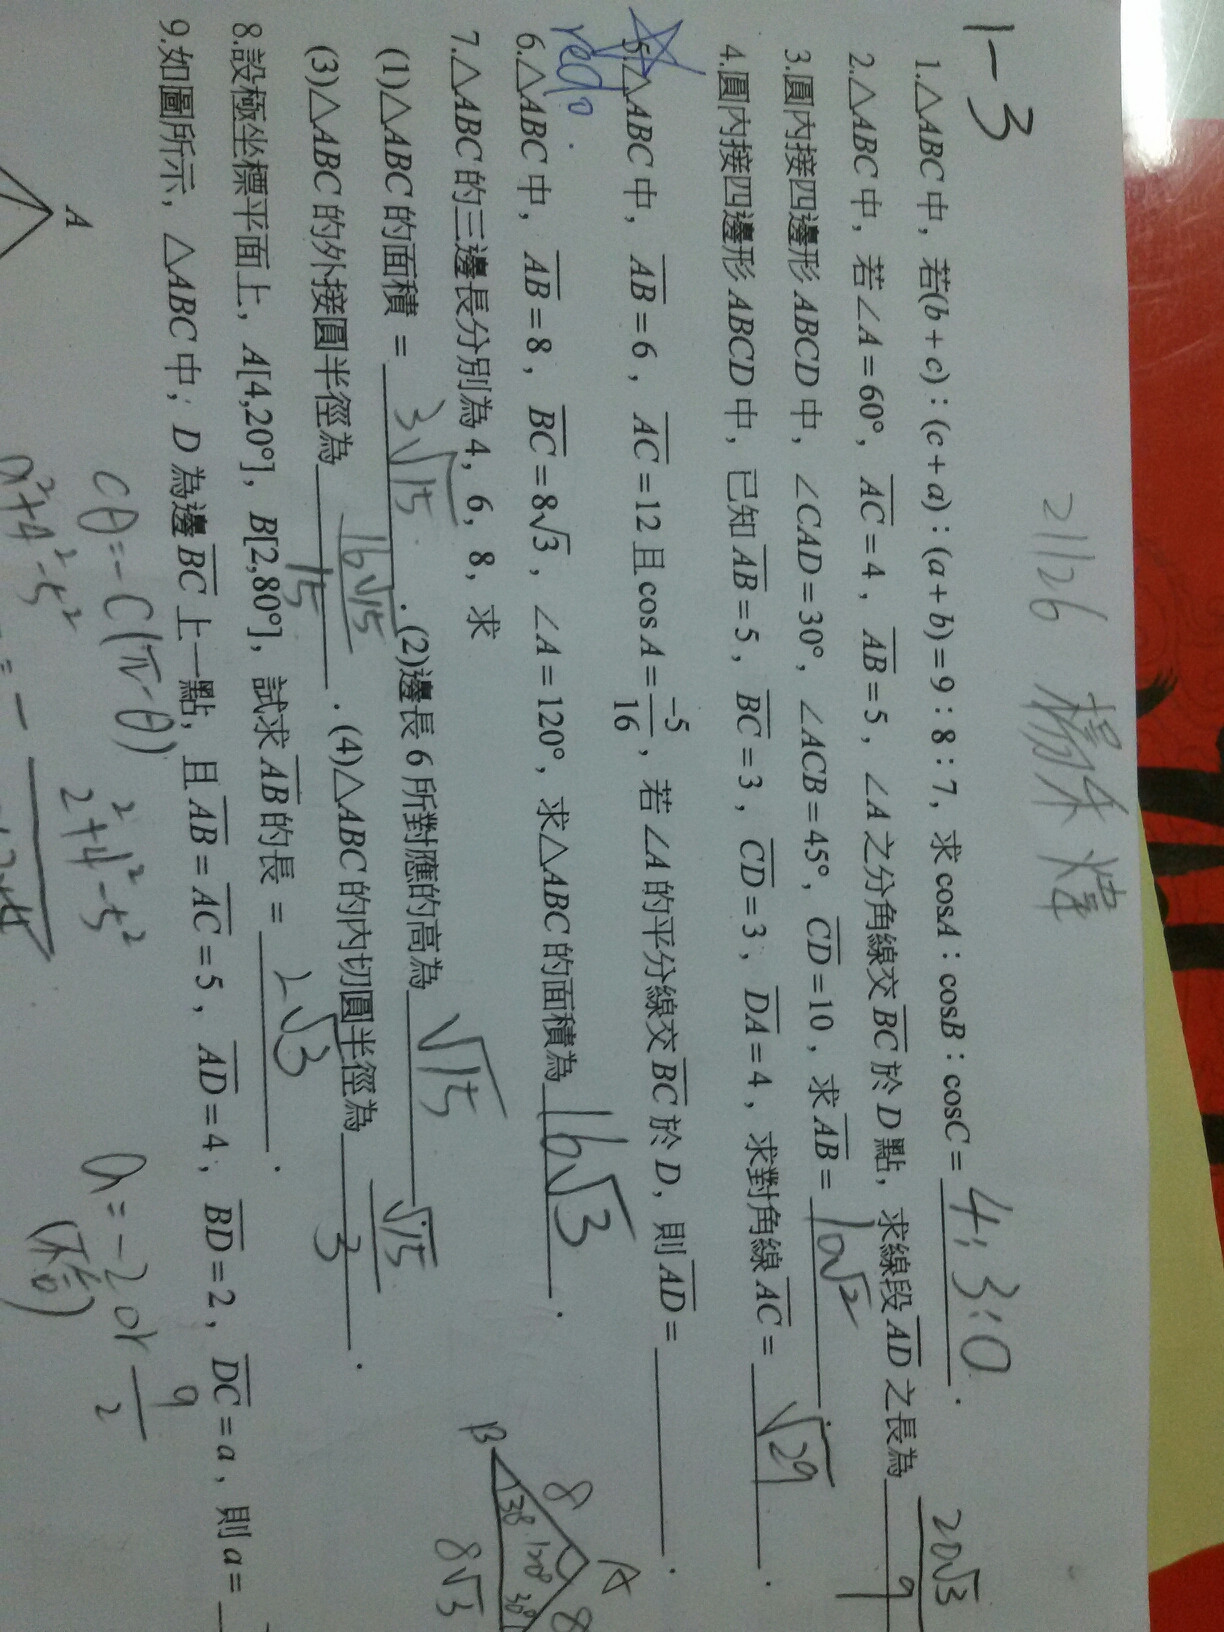 1-3
21126 楊
1.△ABC 中，若(b+c)：(c+a)：(a+b)=9：8：7，求 cosA：cosB：cosC= 4:3:0 .
2.△ABC 中，若∠A=60°，AC=4，AB=5，∠A 之分角線交 BC 於 D 點，求線段 AD 之長為 20√3/9
3.圓內接四邊形 ABCD 中，∠CAD=30°，∠ACB=45°，CD=10，求 AB= 10√2 .
4.圓內接四邊形 ABCD 中，已知 AB=5，BC=3，CD=3，DA=4，求對角線 AC= √29 .
5.△ABC 中，AB=6，AC=12 且 cos A= -5/16，若∠A 的平分線交 BC 於 D，則 AD= .
redo.
6.△ABC 中，AB=8，BC=8√3，∠A=120°，求△ABC 的面積為 16√3 .
7.△ABC 的三邊長分別為 4，6，8，求
(1)△ABC 的面積= 3√15 .(2)邊長 6 所對應的高為 √15
(3)△ABC 的外接圓半徑為 16√15/15 . (4)△ABC 的內切圓半徑為 √15/3 .
8.設極坐標平面上，A[4,20°]，B[2,80°]，試求 AB 的長= 2√3 .
9.如圖所示，△ABC 中，D 為邊 BC 上一點，且 AB=AC=5，AD=4，BD=2，DC=a，則 a=
B 8 A 8
30° 120° 30°
8√3
A
cθ=-c(π-θ)
a²+4²-5²
2²+4²-5²
a=-2 or 9/2
(不合)